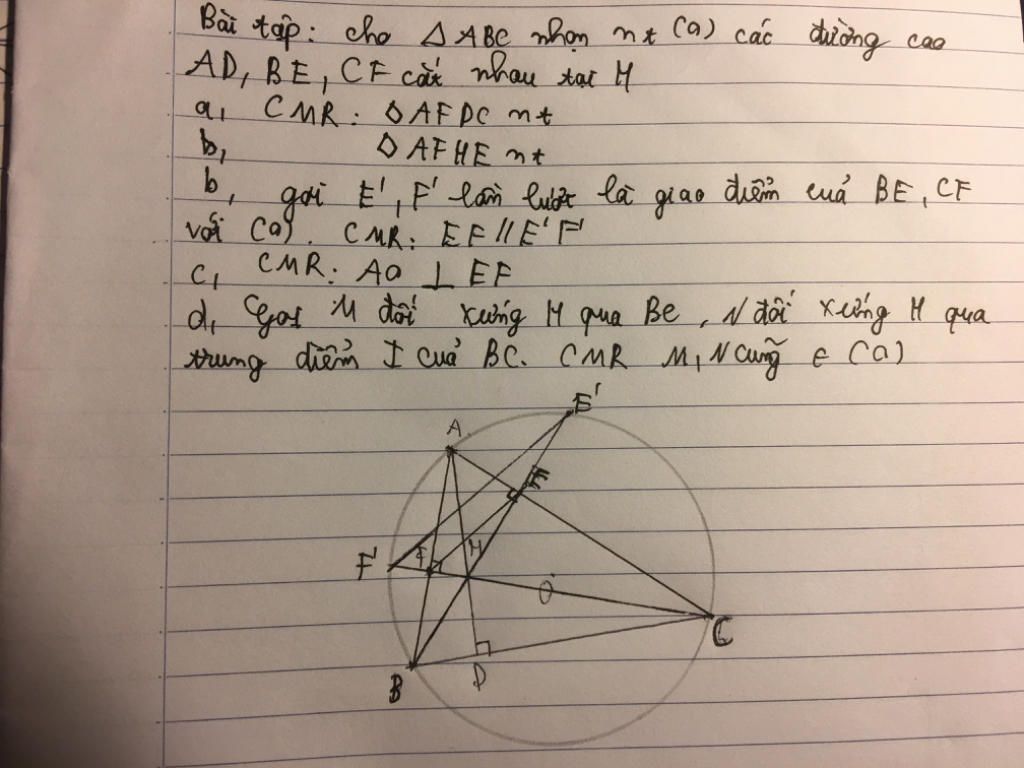 Bài tập: cho △ABC nhọn nt (O) các đường cao
AD, BE, CF cắt nhau tại H
a, CMR: ◇AFDC nt
b, ◇AFHE nt
b, gọi E', F' lần lượt là giao điểm cuả BE, CF
với (O). CMR: EF // E'F'
c, CMR: AO ⊥ EF
d, Gọi M đối xứng H qua BC, N đối xứng H qua
trung điểm I cuả BC. CMR M, N cũng ∈ (O)
E'
A
E
F'
F
H
O
C
D
B